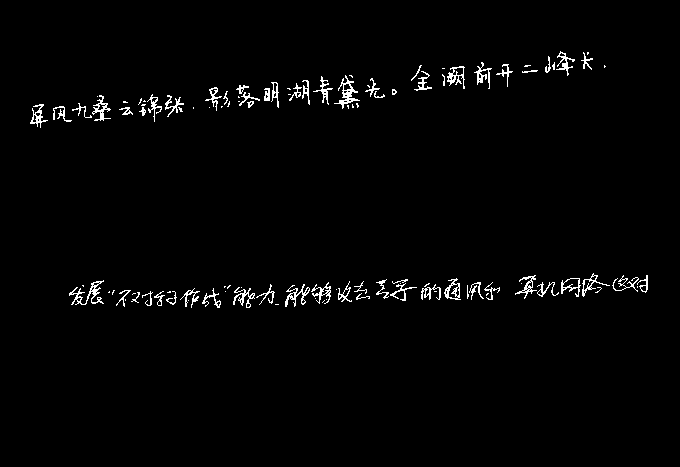 屏风九叠云锦张.影落明湖青黛光。金阙前开二峰长.
发展"不对称作战"能力、能够攻击美军的通讯和 算机网络这对